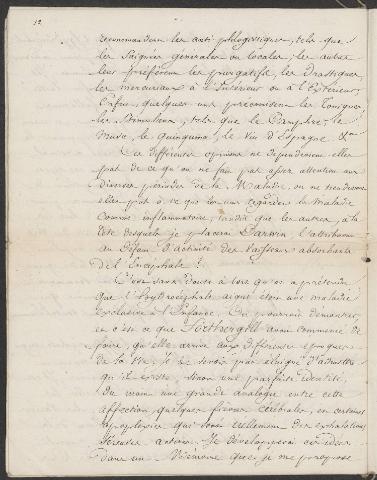 12
recommandent les anti-phlogistiques, tels que
les Saignées générales ou locales; les autres
leur préfèrent les purgatifs, les Drastiques
les mercuriaux à l'Intérieur ou à l'Extérieur;
Enfin, quelques uns préconisent les Toniques
les Stimulans, tels que le Camphre, le
Musc, le Quinquina, le Vin d'Espagne &a
Ces différentes opinions ne dependroient elles
pas de ce qu'on ne fait pas assez attention aux
diverses périodes de la Maladie, ou ne tiendroient
elles pas à ce que les uns regardent la Maladie
comme inflammatoire, tandis que les autres, à la
tête desquels je placerai Darwin l'attribuent
au défaut d'activité des Vaisseaux absorbants
de l'Encéphale?
C'est sans doute à tort qu'on a prétendu
que l'hydrocéphale aiguë étoit une maladie
exclusive à l'Enfance. On pourroit démontrer,
et c'est ce que Fothergill avoit commencé de
faire, qu'elle arrive aux différentes époques
de la vie. Je ne serois pas éloigné d'admettre
qu'il existe, sinon une parfaite identité,
Du moins une grande analogie entre cette
affection, quelques fièvres cérébrales, en certaines
apoplexies qui sont réellement des exhalations
séreuses actives. Je développerai ces idées
Dans un Mémoire que je me propose